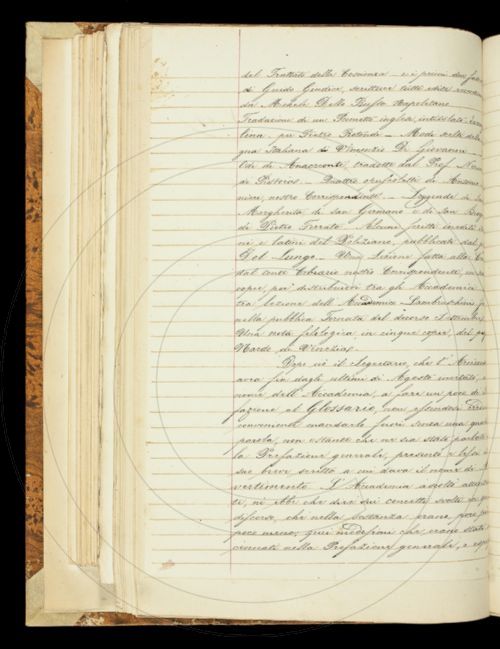 del Trattato della Coscienza – e i primi due
di Guido Giudice, scritture tutte edite
da Michele Dello Russo Napoletano
Traduzione di un Poemetto inglese, intitolato
lina per Pietro Rotondi – Modi scelti della
gua Italiana di Vincenzo Di Giovanni
Odi di Anacreonte, tradotte dal Prof.
di Pistoia. – Quattro opuscoletti di Antonio
nostro Corrispondente. – Leggende di
Margherita di San Germano e di San
di Pietro Ferrato. Alcuni scritti inediti
ni e latini del Poliziano, pubblicati dal
Del Lungo. – Una Lezione fatta alla
dal conte Cibrario nostro Corrispondente, in
copie, per distribuirsi tra gli Accademici
tra lezione dell'Accademico Lambruschini
nella pubblica Tornata del decorso Settembre
Una nota filologica, in cinque copie, del
Nardo di Venezia.
Dopo ciò il Segretario, che l'
avea fin dagli ultimi di Agosto invitato, a
nome dell'Accademia, a fare un poco di
fazione al Glossario, non essendo
conveniente mandarlo fuori senza una qualche
parola, non ostante che ne sia stato parlato
la Prefazione generale, presentò e lesse
suo breve scritto a cui dava il nome di
vertimento. L'Accademia ascoltò
te, nè ebbe che dire sui concetti svolti in
discorso, che nella sostanza erano, poco più
poco meno, quei medesimi che erano stati
cennati nella Prefazione generale, e